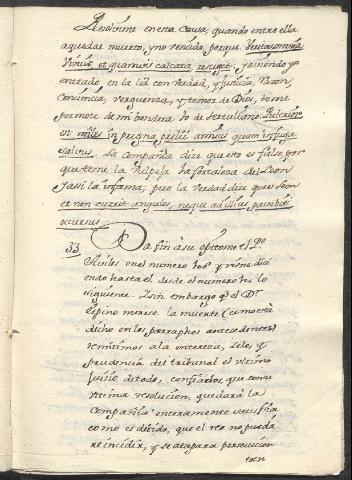 Resolvime en esta causa, quando entre ella
a quedar muerto, y no vencido, porque Veritas omnia
Vincit, et quamvis calcata, resurget; y aviendo yo
entrado en la lid con verdad, y Justicia, Razon,
Conciencia, verguenza, y temor de Dios, tome
por mote de mi bandera lo de Tertuliano. Pulcrior
est miles in pugna pilis amissis quam in fuga
salvus. La Compañia dize que esto es falso, por
que teme la Vulpeja la fortaleza del Leon
y assi la infama; pero la Verdad dize que Leon
et non currit angulos, neque ad illius pavebit
occursus.
33 Da fin à su epitome el Pe.
Aviles en el numero 106 y viene dici
endo hasta el, desde el numero 102 lo
siguiente. I sin embargo que el Dr.
Espino merece la muerte (como està
dicho en los parraphos antecedentes)
remitimos a la entereza, zelo, y
prudencia del tribunal el ultimo
juisio de todo, confiados, que con su
ultima resolucion, quedarà la
Compañia enteramente satisfecha
como es devido, que el reo no pueda
reincidir, y se atajara persecucion